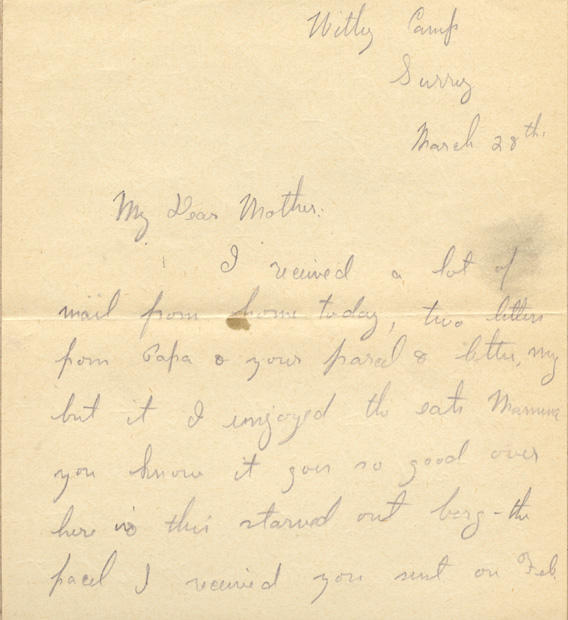 Witley Camp
Surrey
March 28th.
My Dear Mother.
I received a lot of
mail from home today, two letters
from Papa & your parcel & letter, my
but it I enjoyed the eats Mamma
you know it goes so good over
here in this starved out berg - the
pacel I received you sent on Feb